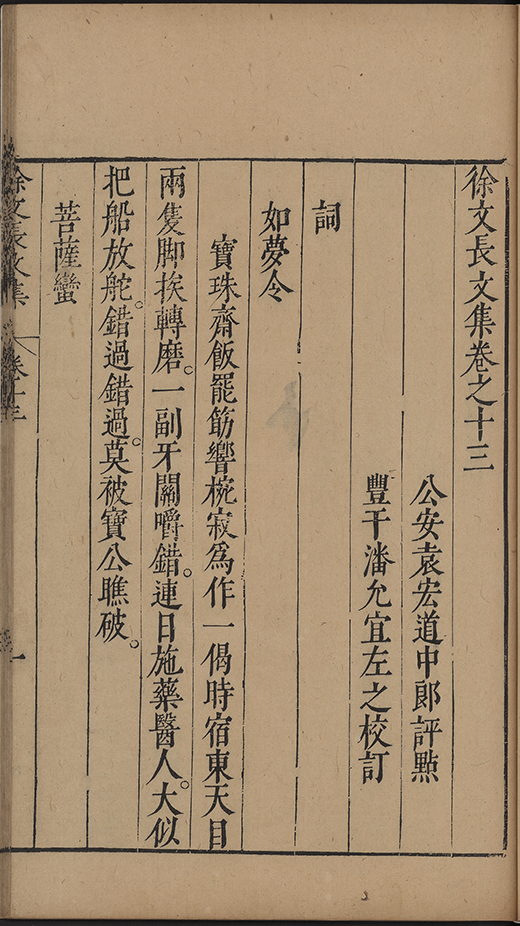 徐文長文集卷之十三
公安袁宏道中郎評點
豐干潘允宜左之校訂
詞
如夢令
寶珠齋飯罷筯響椀寂爲作一偈時宿東天目
兩隻脚挨轉磨。一副牙關嚼錯。連日施藥醫人。大似
把船放舵。錯過錯過。莫被寶公瞧破。
菩薩蠻
徐文長文集 卷十三 一